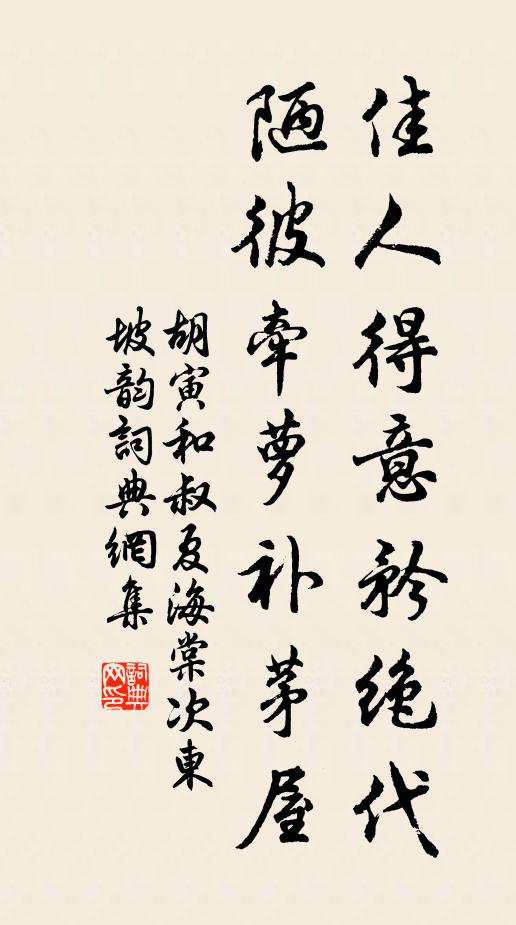 佳人得意矜絶代
陋彼牽蘿补茅屋
胡寅和叔夏海棠次東
坡韵詞典網集
詞典
网印